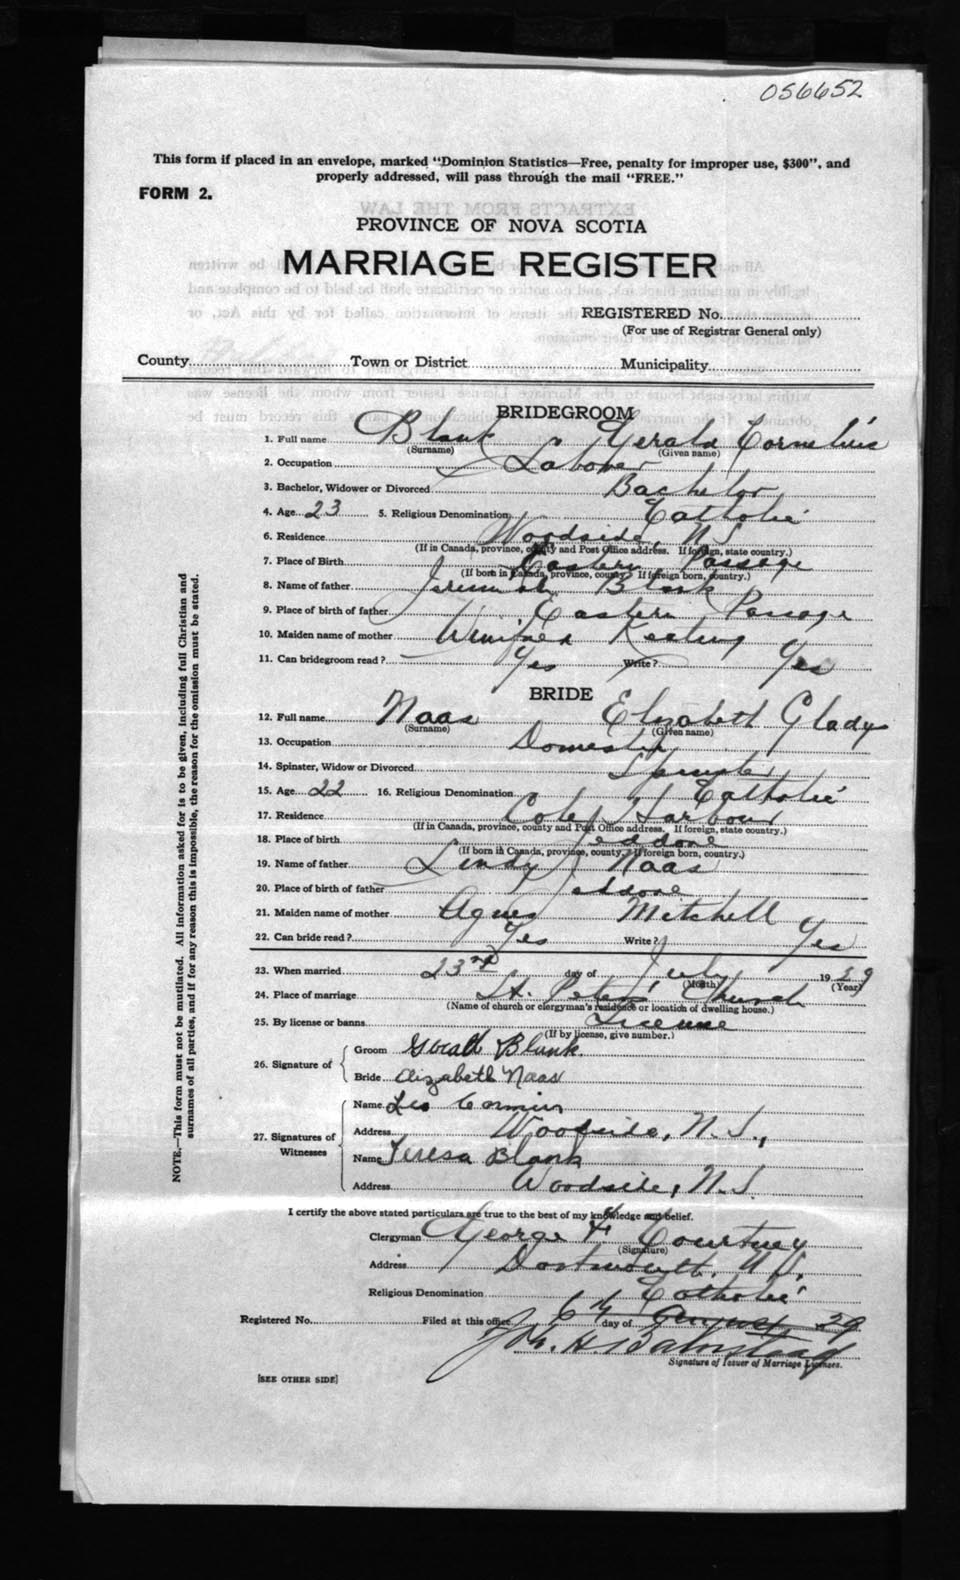 056652
This form if placed in an envelope, marked "Dominion Statistics—Free, penalty for improper use, $300", and
properly addressed, will pass through the mail "FREE."
FORM 2.
PROVINCE OF NOVA SCOTIA
MARRIAGE REGISTER
REGISTERED No.
(For use of Registrar General only)
County Town or District Municipality
BRIDEGROOM
1. Full name Blank Gerald Cornelius
(Surname) (Given name)
2. Occupation Laborer
3. Bachelor, Widower or Divorced Bachelor
4. Age 23 5. Religious Denomination Catholic
6. Residence Woodside, N S
(If in Canada, province, county and Post Office address. If foreign, state country.)
7. Place of Birth Eastern Passage
(If born in Canada, province, county. If foreign born, country.)
8. Name of father Jeremiah Blank
9. Place of birth of father Eastern Passage
10. Maiden name of mother Winifred Keating
11. Can bridegroom read? Yes Write? Yes
BRIDE
12. Full name Naas Elizabeth Gladys
(Surname) (Given name)
13. Occupation Domestic
14. Spinster, Widow or Divorced Spinster
15. Age 22 16. Religious Denomination Catholic
17. Residence Cole Harbour
(If in Canada, province, county and Post Office address. If foreign, state country.)
18. Place of birth Jeddore
(If born in Canada, province, county. If foreign born, country.)
19. Name of father Lindy Naas
20. Place of birth of father Jeddore
21. Maiden name of mother Agnes Mitchell
22. Can bride read? Yes Write? Yes
23. When married 23rd day of July 1929
(Month) (Year)
24. Place of marriage St. Peter's Church
(Name of church or clergyman's residence or location of dwelling house.)
25. By license or banns License
(If by license, give number.)
26. Signature of
Groom Gerald Blank
Bride Elizabeth Naas
27. Signatures of Witnesses
Name Leo Cormier
Address Woodside, N.S.,
Name Teresa Blank
Address Woodside, N.S.
I certify the above stated particulars are true to the best of my knowledge and belief.
Clergyman George F. Courtney
(Signature)
Address Dartmouth, N.S.
Religious Denomination Catholic
Registered No. Filed at this office 6th day of August 29
H.
Signature of Issuer of Marriage Licenses.
[SEE OTHER SIDE]
NOTE.—This form must not be mutilated. All information asked for is to be given, including full Christian and
surnames of all parties, and if for any reason this is impossible, the reason for the omission must be stated.